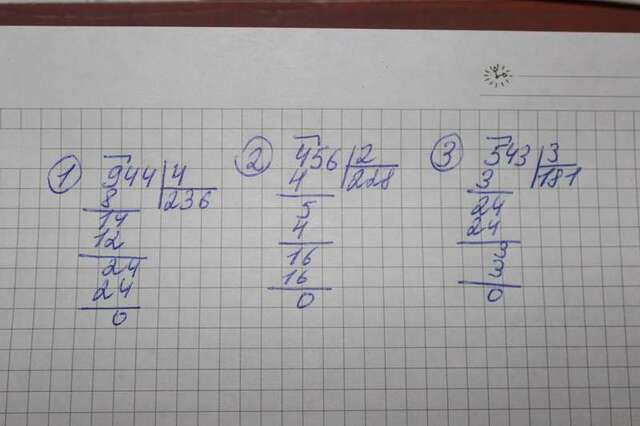 1 944 | 4
8 | 236
14
12
24
24
0
2 456 | 2
4 | 228
5
4
16
16
0
3 543 | 3
3 | 181
24
24
3
3
0